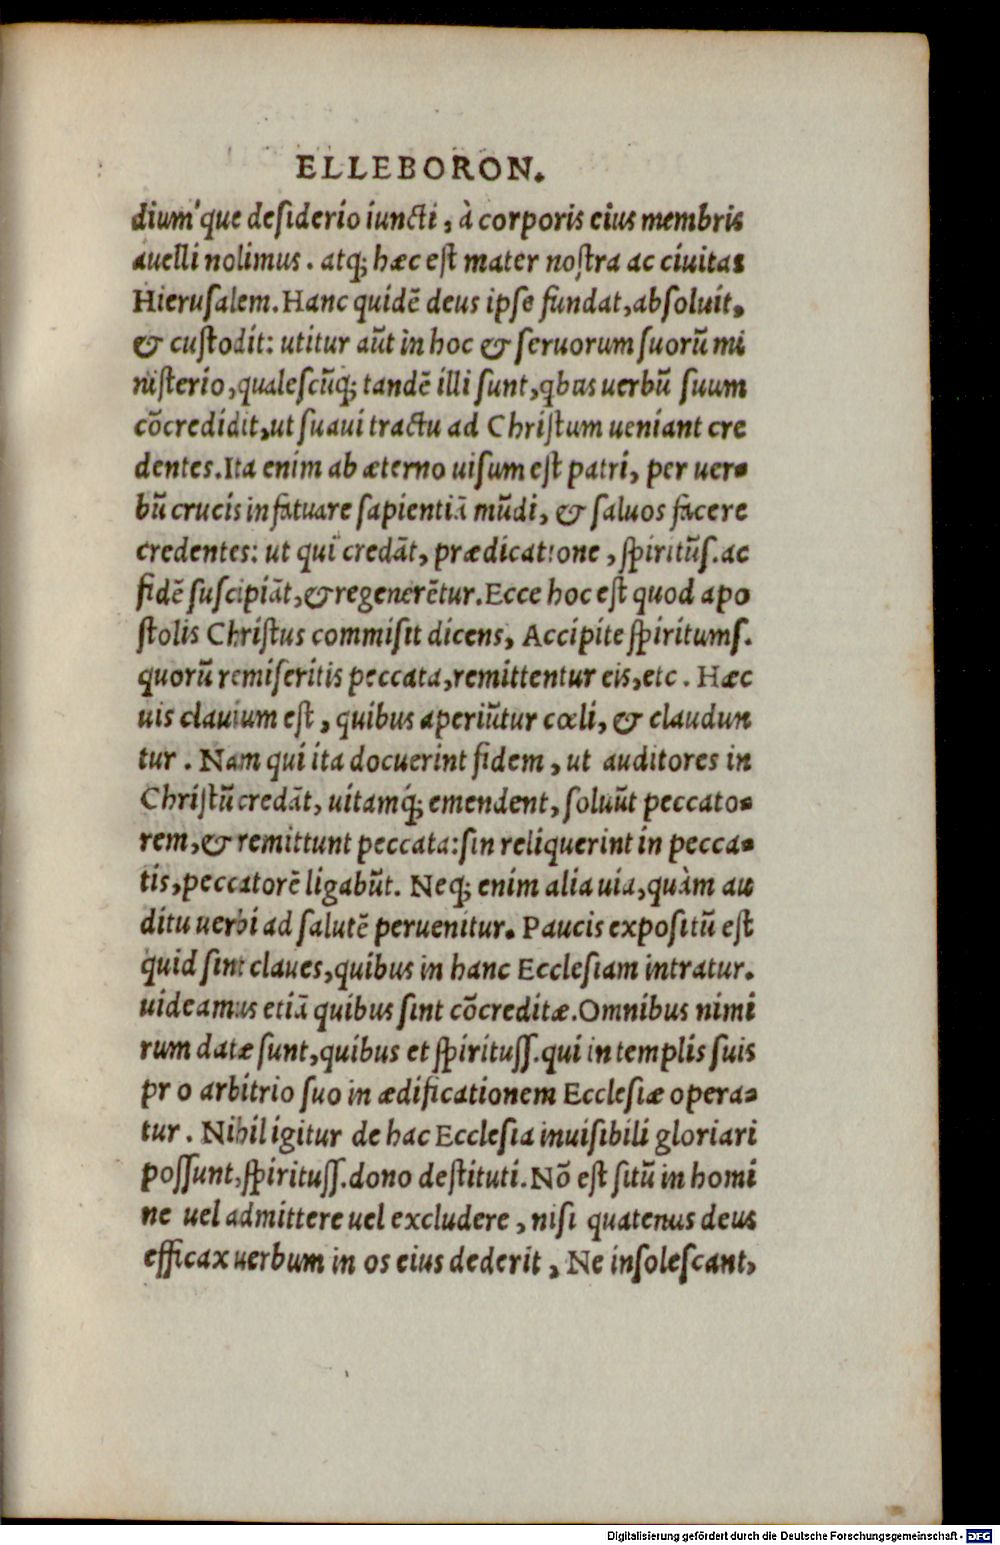 ELLEBORON.
dium'que desiderio iuncti, à corporis eius membris
auelli nolimus. atq; hæc est mater nostra ac ciuitas
Hierusalem. Hanc quidẽ deus ipse fundat, absoluit,
& custodit: utitur aũt in hoc & seruorum suorũ mi
nisterio, qualescũq; tandẽ illi sunt, qbus uerbũ suum
cõcredidit, ut suaui tractu ad Christum ueniant cre
dentes. Ita enim ab æterno uisum est patri, per uer-
bũ crucis infatuare sapientiã mũdi, & saluos facere
credentes: ut qui credãt, prædicatione, spiritũs. ac
fidẽ suscipiãt, & regenerẽtur. Ecce hoc est quod apo
stolis Christus commisit dicens, Accipite spiritums.
quorũ remiseritis peccata, remittentur eis, etc. Hæc
uis clauium est, quibus aperiũtur cœli, & claudun
tur. Nam qui ita docuerint fidem, ut auditores in
Christũ credãt, uitamq́; emendent, soluũt peccato-
rem, & remittunt peccata: sin reliquerint in pecca-
tis, peccatorẽ ligabũt. Neq; enim alia uia, quàm au
ditu uerbi ad salutẽ peruenitur. Paucis expositũ est
quid sint claues, quibus in hanc Ecclesiam intratur.
uideamus etiã quibus sint cõcreditæ. Omnibus nimi
rum datæ sunt, quibus et spirituss. qui in templis suis
pro arbitrio suo in ædificationem Ecclesiæ opera-
tur. Nihil igitur de hac Ecclesia inuisibili gloriari
possunt, spirituss. dono destituti. Nõ est sitũ in homi
ne uel admittere uel excludere, nisi quatenus deus
efficax uerbum in os eius dederit, Ne insolescant,
Digitalisierung gefördert durch die Deutsche Forschungsgemeinschaft - DFG